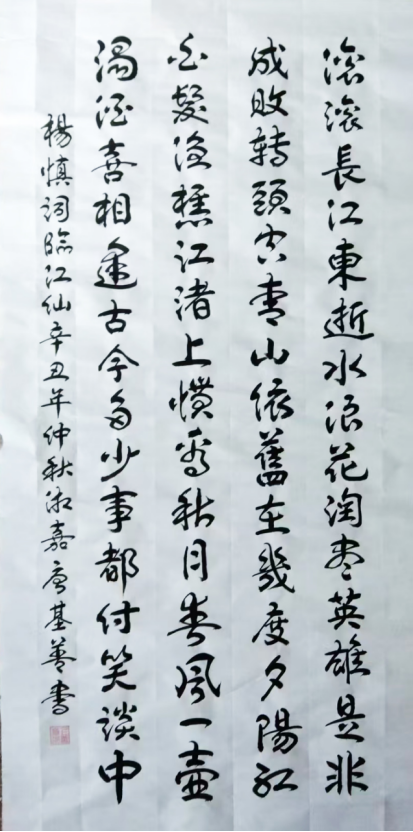 滚滚長江東逝水浪花淘盡英雄是非
成敗转頭空青山依舊在幾度夕陽红
白髮渔樵江渚上惯看秋月春風一壺
濁酒喜相逢古今多少事都付笑談中
楊慎词臨江仙辛丑年仲秋湘嘉唐基善書